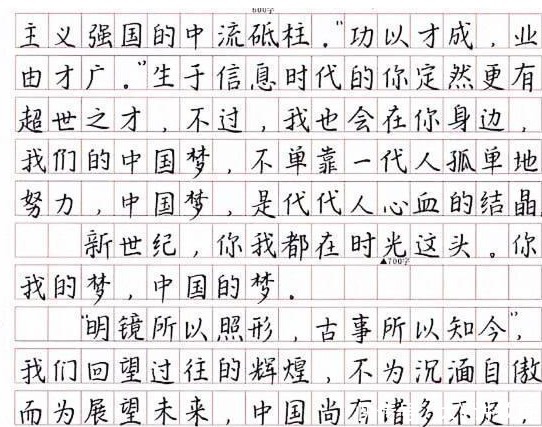 600字
主义强国的中流砥柱。"功以才成，业
由才广。"生于信息时代的你定然更有
超世之才，不过，我也会在你身边，
我们的中国梦，不单靠一代人孤单地
努力，中国梦，是代代人心血的结晶
新世纪，你我都在时光这头。你
▲700字
我的梦，中国的梦。
"明镜所以照形，古事所以知今"，
我们回望过往的辉煌，不为沉湎自傲
而为展望未来，中国尚有诸多不足，